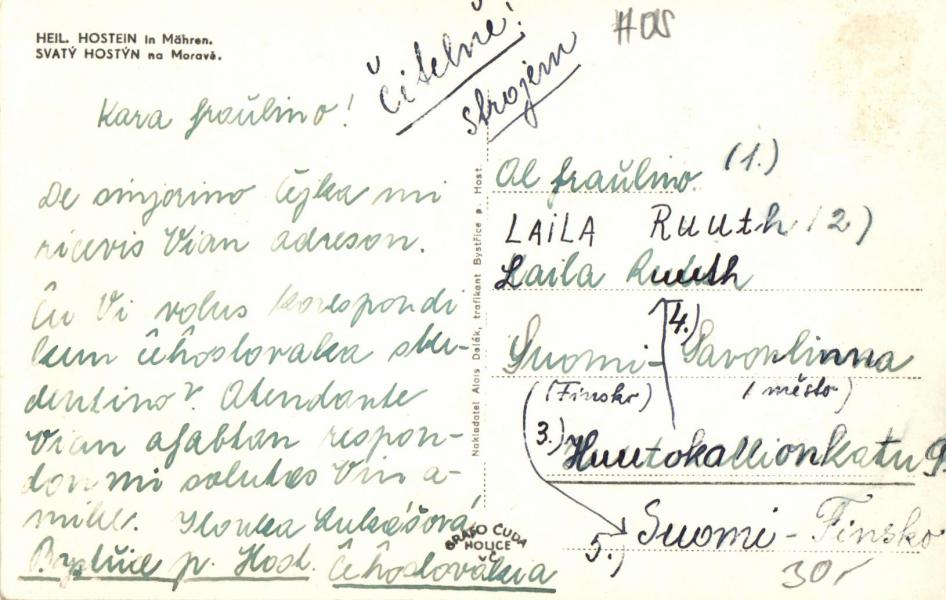 HEIL. HOSTEIN in Mähren.
SVATÝ HOSTÝN na Moravě.
Čitelně!
strojem
Kara fraŭlino!
De sinjorino Čejka mi
ricevis Vian adreson.
Ĉu Vi volus korespondi
kun ĉeĥoslovaka stu-
dentino? Atendante
Vian afablan respon-
don mi salutas Vin a-
mike.
Lukášová
Bystřice p. Host. Ĉeĥoslovakia
Nakladatel Alois Dolák, trafikant Bystřice p. Host.
Al fraŭlino (1.)
LAILA Ruuth (2)
Laila Ruuth
4.)
Suomi - Savonlinna
(Finsko) (město)
3.) Huutokallionkatu 9
5.) Suomi - Finsko
BRAFO ČUDA
HOLICE
v Č.
30